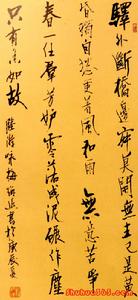 驛外斷橋邊寂寞開無主已是黃
昏獨自愁更著風和雨 無意苦爭
春一任群芳妒零落成泥碾作塵
只有香如故
陸游 詠梅
書於庚辰夏